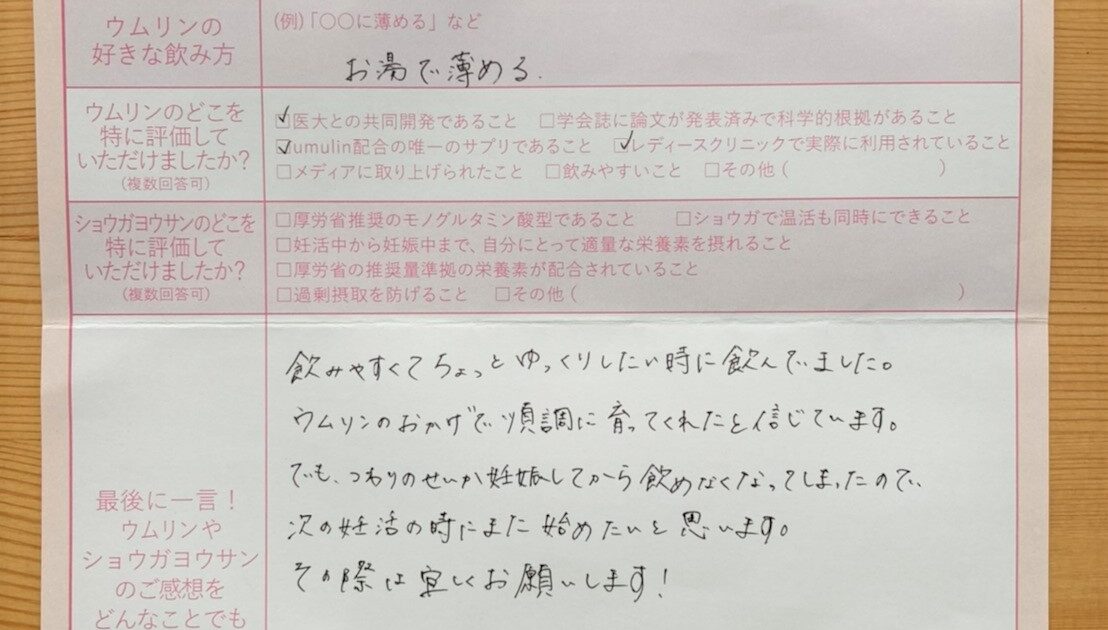 ウムリンの
好きな飲み方
(例)「〇〇に薄める」など
お湯で薄める.
ウムリンのどこを
特に評価して
いただけましたか?
(複数回答可)
☑医大との共同開発であること □学会誌に論文が発表済みで科学的根拠があること
☑umulin配合の唯一のサプリであること ☑レディースクリニックで実際に利用されていること
□メディアに取り上げられたこと □飲みやすいこと □その他( )
ショウガヨウサンのどこを
特に評価して
いただけましたか?
(複数回答可)
□厚労省推奨のモノグルタミン酸型であること □ショウガで温活も同時にできること
□妊活中から妊娠中まで、自分にとって適量な栄養素を摂れること
□厚労省の推奨量準拠の栄養素が配合されていること
□過剰摂取を防げること □その他( )
最後に一言!
ウムリンや
ショウガヨウサン
のご感想を
どんなことでも
飲みやすくてちょっとゆっくりしたい時に飲んでいました。
ウムリンのおかげで順調に育ってくれたと信じています。
でも、つわりのせいか妊娠してから飲めなくなってしまったので、
次の妊活の時にまた始めたいと思います。
その際は宜しくお願いします!